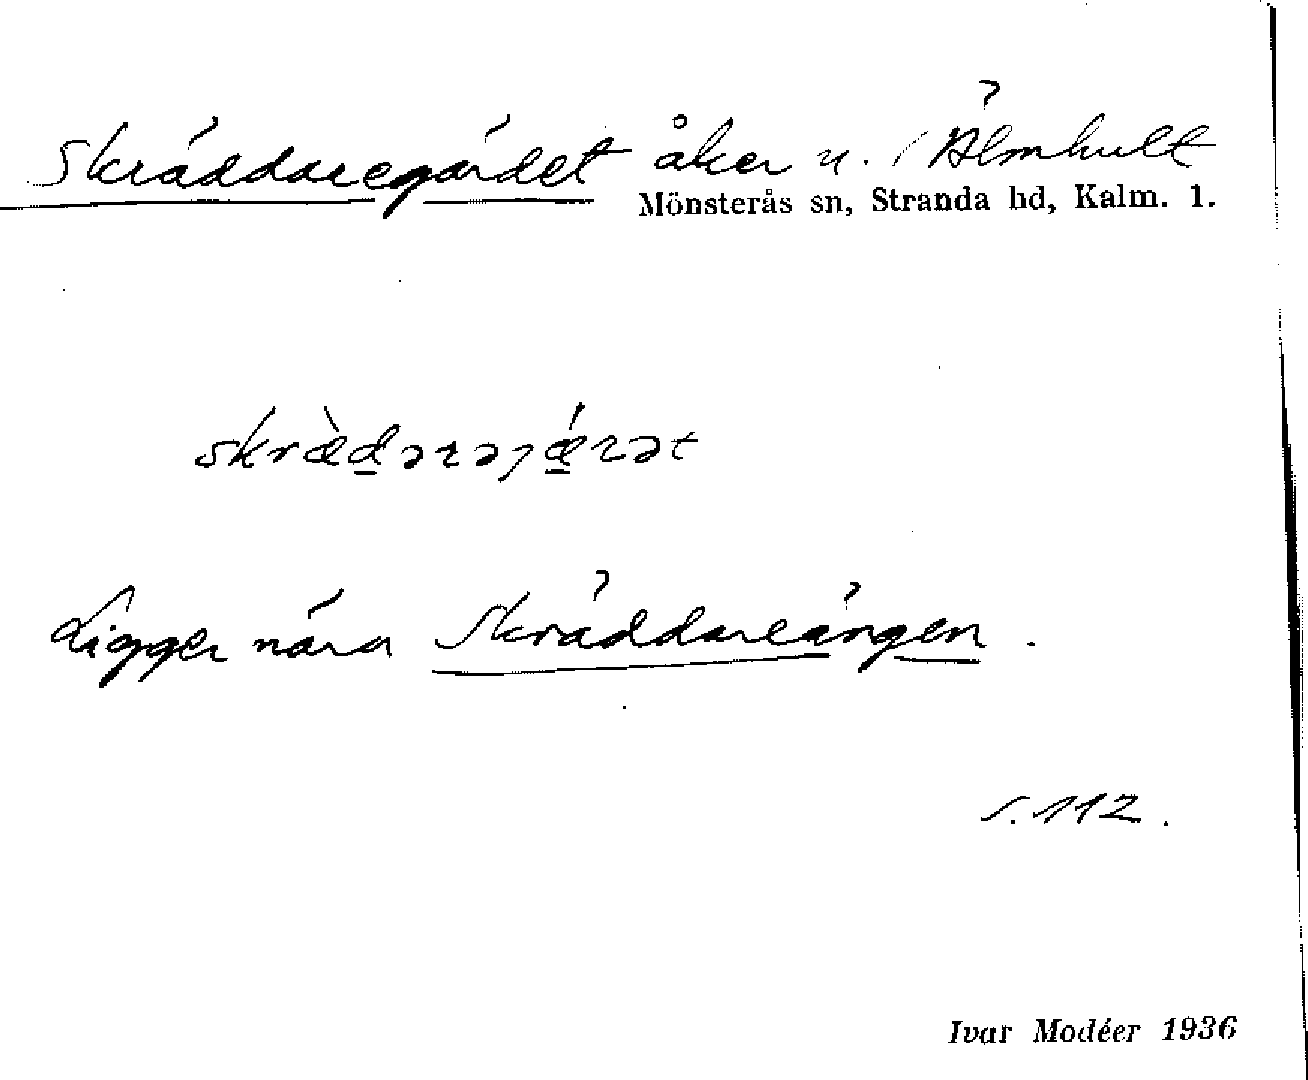 Skräddaregärdet åker u. Älmhult
Mönsterås sn, Stranda hd, Kalm. l.
Ligger nära Skräddareängen.
s. 112.
Ivar Modéer 1936